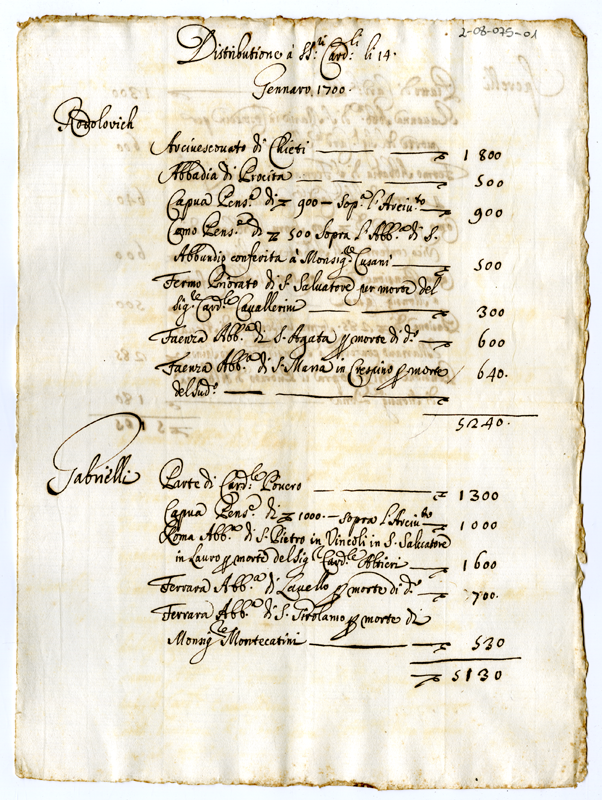 2-08-075-01
Distributione à SS.ri Card.li li 14.
Gennaro, 1700.
Rodolovich
Arcivescovato di Chieti — 1800
Abbadia di Procita — 500
Capua Pens.e di 900 – Sop.a l'Arciv.to — 900
Como Pens.e di 500 Sopra l'Abb.a di S.
Abbundio conferita à Monsig.re Cusani — 500
Fermo Priorato di S. Salvatore per morte del
Sig.re Card.le Cavallerini — 300
Faenza Abb.a di S. Agata p morte di d.o — 600
Faenza Abb.a di S. Maria in Crespino p morte 640.
del sud.o —
5240.
Gabrielli
Parte di Card.le Povero — 1300
Capua Pens.e di 1000 – sopra l'Arciv.to — 1000
Roma Abb.a di S. Pietro in Vincoli in S. Salvatore
in Lauro p morte del Sig.r Card.le Altieri — 1600
Ferrara Abb.a di Lavello p morte di d.o — 700.
Ferrara Abb.a di S. Girolamo p morte di
Monsig.re Montecatini — 530
5130